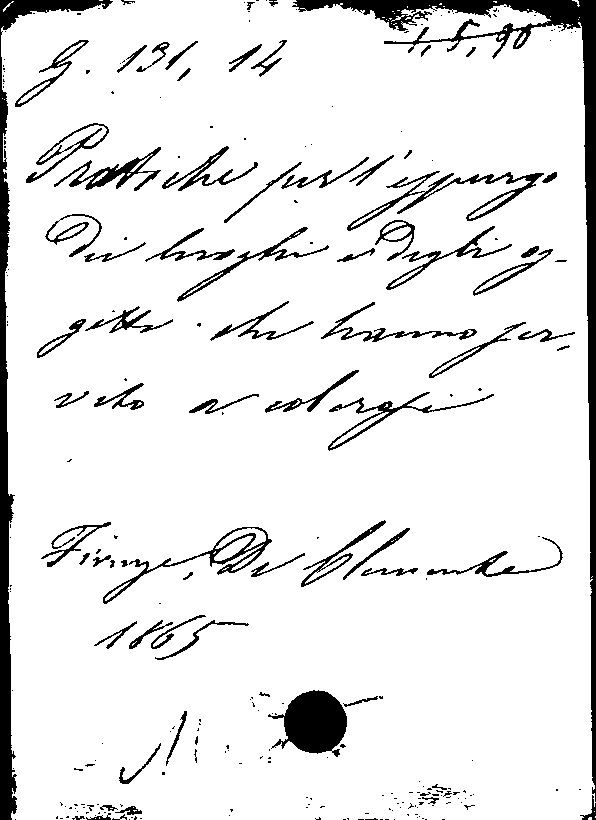 G. 131, 14
1, 5, 90
Pratiche per l'espurgo
dei luoghi e degli og-
getti che hanno ser-
vito a colerosi
Firenze, De Clemente
1865